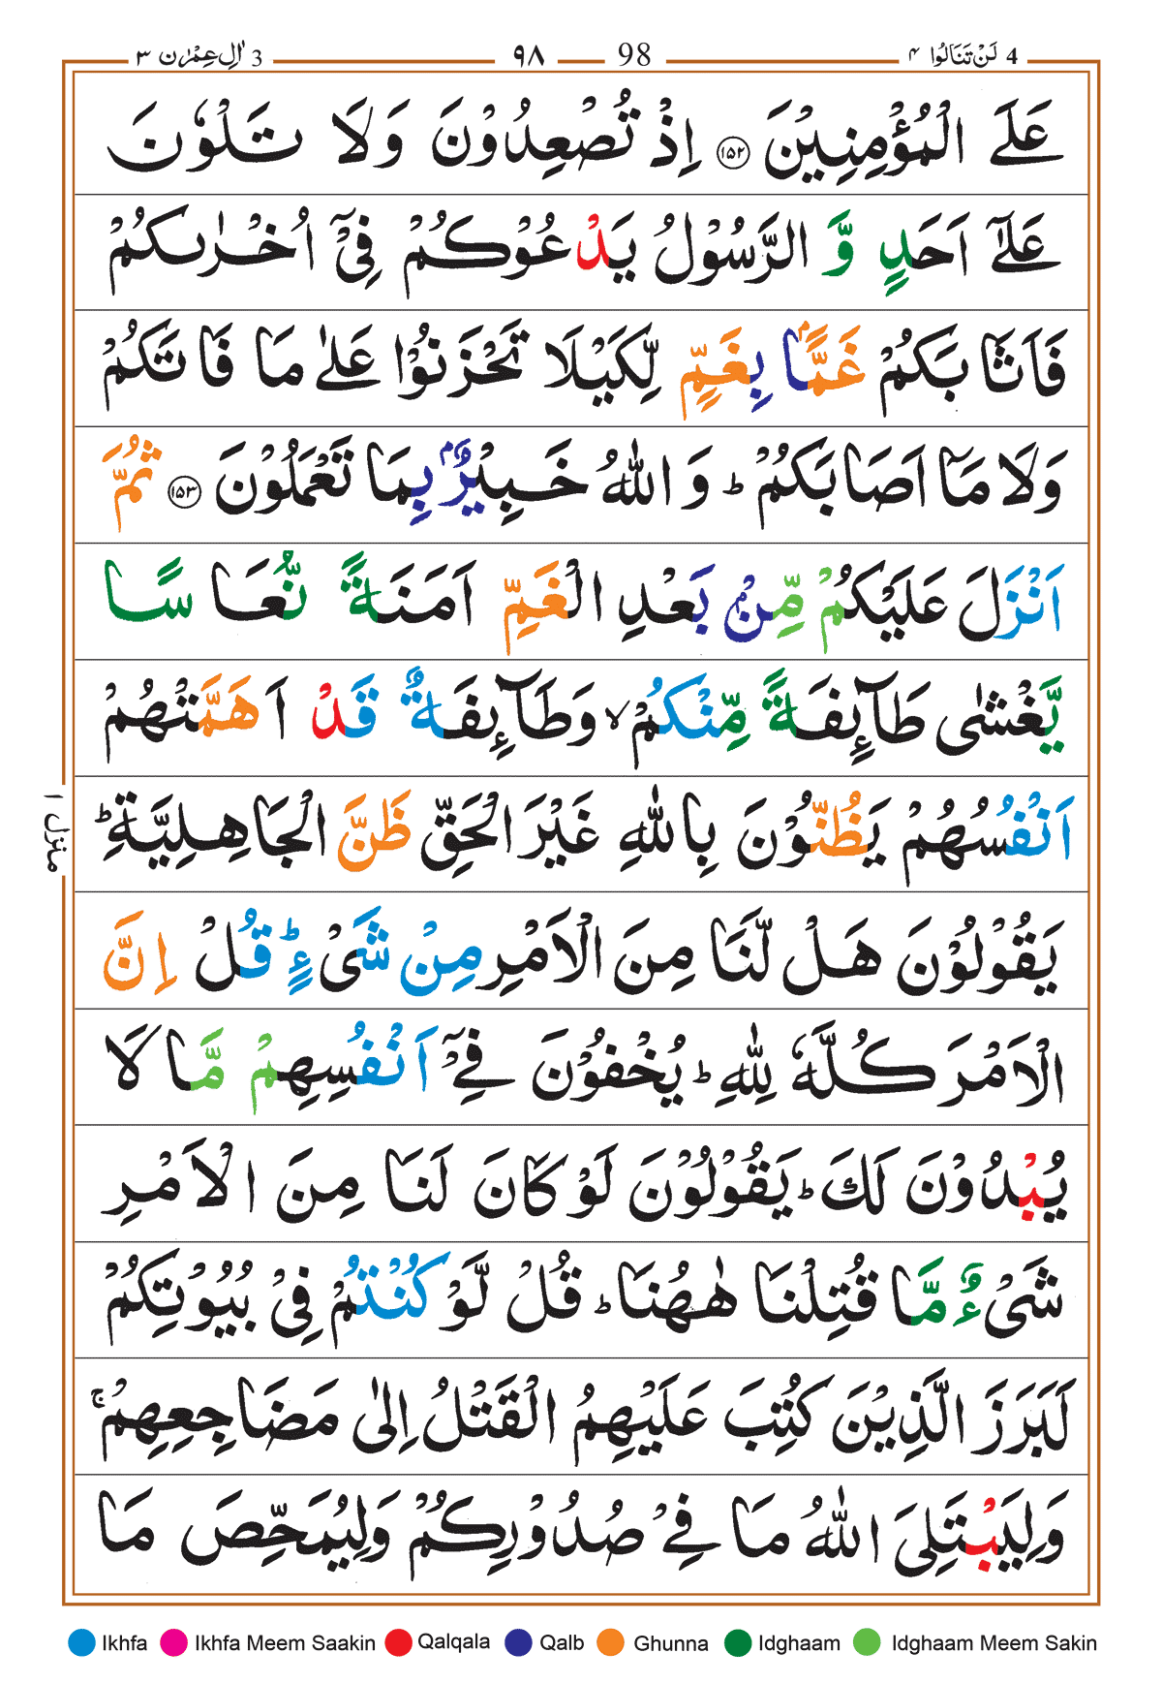 3 اٰلِ عِمْرٰن ٣ ٩٨ 98 لَنْ تَنَالُوْا ٤ 4
عَلَى الْمُؤْمِنِيْنَ ﴿١٥٢﴾ اِذْ تُصْعِدُوْنَ وَلَا تَلْوٗنَ
عَلٰٓى اَحَدٍ وَّ الرَّسُوْلُ يَدْعُوْكُمْ فِيْٓ اُخْرٰىكُمْ
فَاَثَابَكُمْ غَمًّۢا بِغَمٍّ لِّكَيْلَا تَحْزَنُوْا عَلٰى مَا فَاتَكُمْ
وَلَا مَآ اَصَابَكُمْ ؕ وَ اللّٰهُ خَبِيْرٌۢ بِمَا تَعْمَلُوْنَ ﴿١٥٣﴾ ثُمَّ
اَنْزَلَ عَلَيْكُمْ مِّنْۢ بَعْدِ الْغَمِّ اَمَنَةً نُّعَاسًا
يَّغْشٰى طَآىِٕفَةً مِّنْكُمْ ۙ وَطَآىِٕفَةٌ قَدْ اَهَمَّتْهُمْ
اَنْفُسُهُمْ يَظُنُّوْنَ بِاللّٰهِ غَيْرَ الْحَقِّ ظَنَّ الْجَاهِلِيَّةِ ؕ
يَقُوْلُوْنَ هَلْ لَّنَا مِنَ الْاَمْرِ مِنْ شَيْءٍ ؕ قُلْ اِنَّ
الْاَمْرَ كُلَّهٗ لِلّٰهِ ؕ يُخْفُوْنَ فِيْٓ اَنْفُسِهِمْ مَّا لَا
يُبْدُوْنَ لَكَ ؕ يَقُوْلُوْنَ لَوْ كَانَ لَنَا مِنَ الْاَمْرِ
شَيْءٌ مَّا قُتِلْنَا هٰهُنَا ؕ قُلْ لَّوْ كُنْتُمْ فِيْ بُيُوْتِكُمْ
لَبَرَزَ الَّذِيْنَ كُتِبَ عَلَيْهِمُ الْقَتْلُ اِلٰى مَضَاجِعِهِمْ ۚ
وَلِيَبْتَلِيَ اللّٰهُ مَا فِيْ صُدُوْرِكُمْ وَلِيُمَحِّصَ مَا
منزل ١
Ikhfa Ikhfa Meem Saakin Qalqala Qalb Ghunna Idghaam Idghaam Meem Sakin